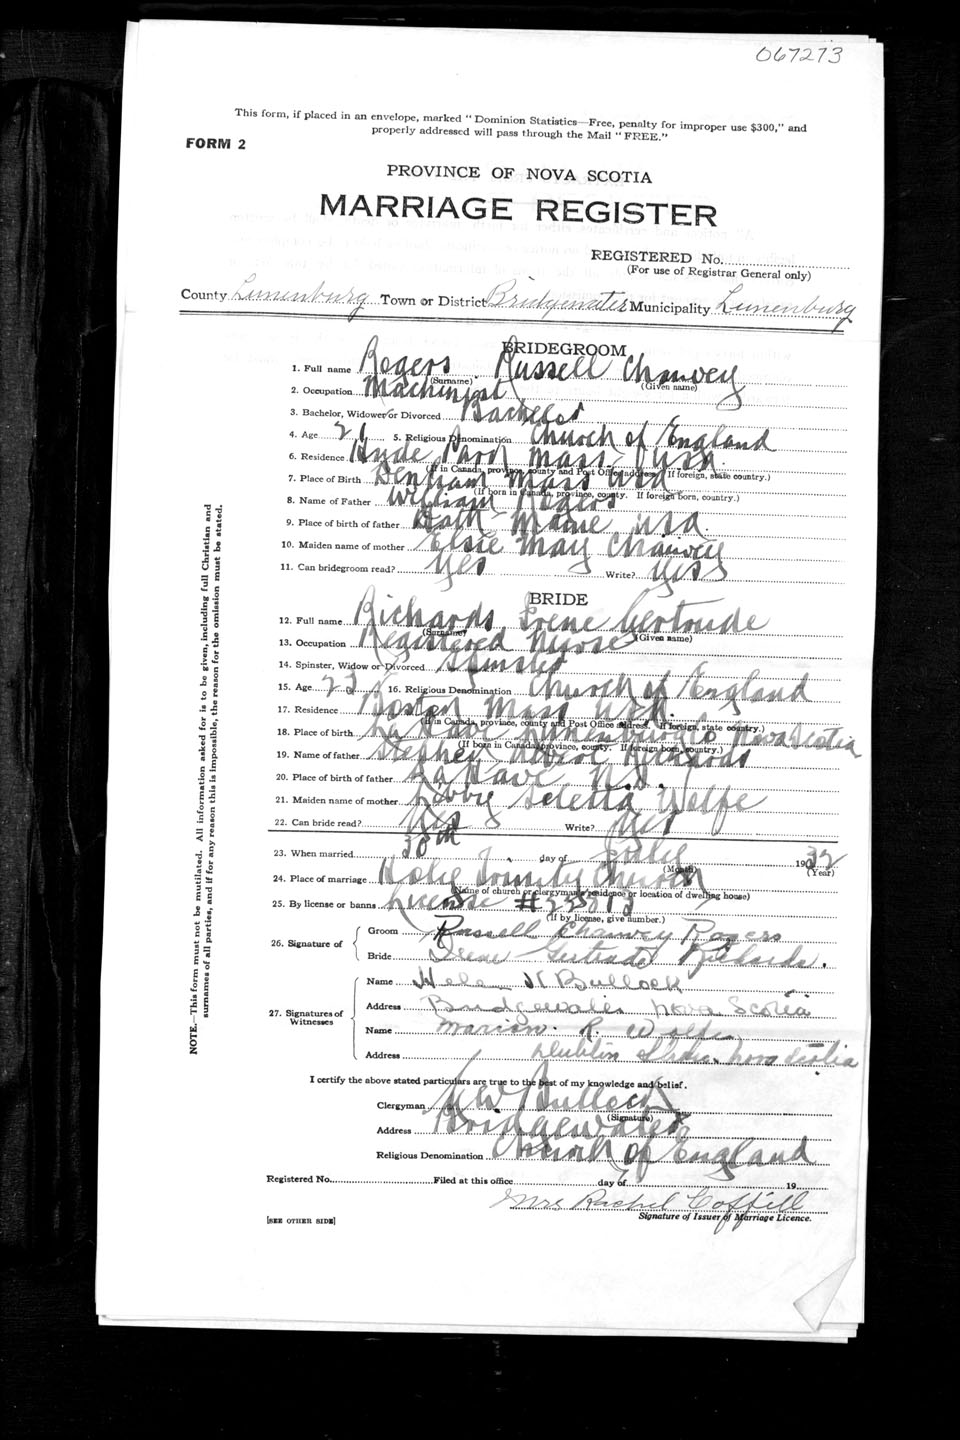 067273
This form, if placed in an envelope, marked "Dominion Statistics—Free, penalty for improper use $300," and
properly addressed will pass through the Mail "FREE."
FORM 2
PROVINCE OF NOVA SCOTIA
MARRIAGE REGISTER
REGISTERED No.
(For use of Registrar General only)
County Lunenburg Town or District Bridgewater Municipality Lunenburg
BRIDEGROOM
1. Full name Rogers Russell Chauvey
(Surname) (Given name)
2. Occupation Machinist
3. Bachelor, Widower or Divorced Bachelor
4. Age 21 5. Religious Denomination Church of England
6. Residence Hyde Park Mass. USA.
(If in Canada, province, county and Post Office address. If foreign, state country.)
7. Place of Birth Mass USA
(If born in Canada, province, county. If foreign born, country.)
8. Name of Father William Rogers
9. Place of birth of father Bath Maine USA.
10. Maiden name of mother Elsie May Chauvey
11. Can bridegroom read? Yes Write? Yes
BRIDE
12. Full name Richards Irene Gertrude
(Surname) (Given name)
13. Occupation Registered Nurse
14. Spinster, Widow or Divorced Spinster
15. Age 16. Religious Denomination Church of England
17. Residence Boston Mass USA.
(If in Canada, province, county and Post Office address. If foreign, state country.)
18. Place of birth La Have Lunenburg Co Nova Scotia
(If born in Canada, province, county. If foreign born, country.)
19. Name of father Stephen Richards
20. Place of birth of father La Have N.S.
21. Maiden name of mother Libby Selena Wolfe
22. Can bride read? Yes Write? Yes
23. When married 30th day of July 1932
(Month) (Year)
24. Place of marriage Holy Trinity Church
(Name of church or clergyman's residence, or location of dwelling house)
25. By license or banns License #
(If by license, give number.)
26. Signature of
Groom Russell Chauvey Rogers
Bride Irene Gertrude Richards.
27. Signatures of Witnesses
Name Helen N Bullock
Address Bridgewater Nova Scotia
Name Marion R.
Address Dublin Shore, Nova Scotia
I certify the above stated particulars are true to the best of my knowledge and belief.
Clergyman Bullock
(Signature)
Address Bridgewater
Religious Denomination Church of England
Registered No. Filed at this office day of 19
Mrs Rachel Coffill
Signature of Issuer of Marriage Licence.
[SEE OTHER SIDE]
NOTE.—This form must not be mutilated. All information asked for is to be given, including full Christian and
surnames of all parties, and if for any reason this is impossible, the reason for the omission must be stated.